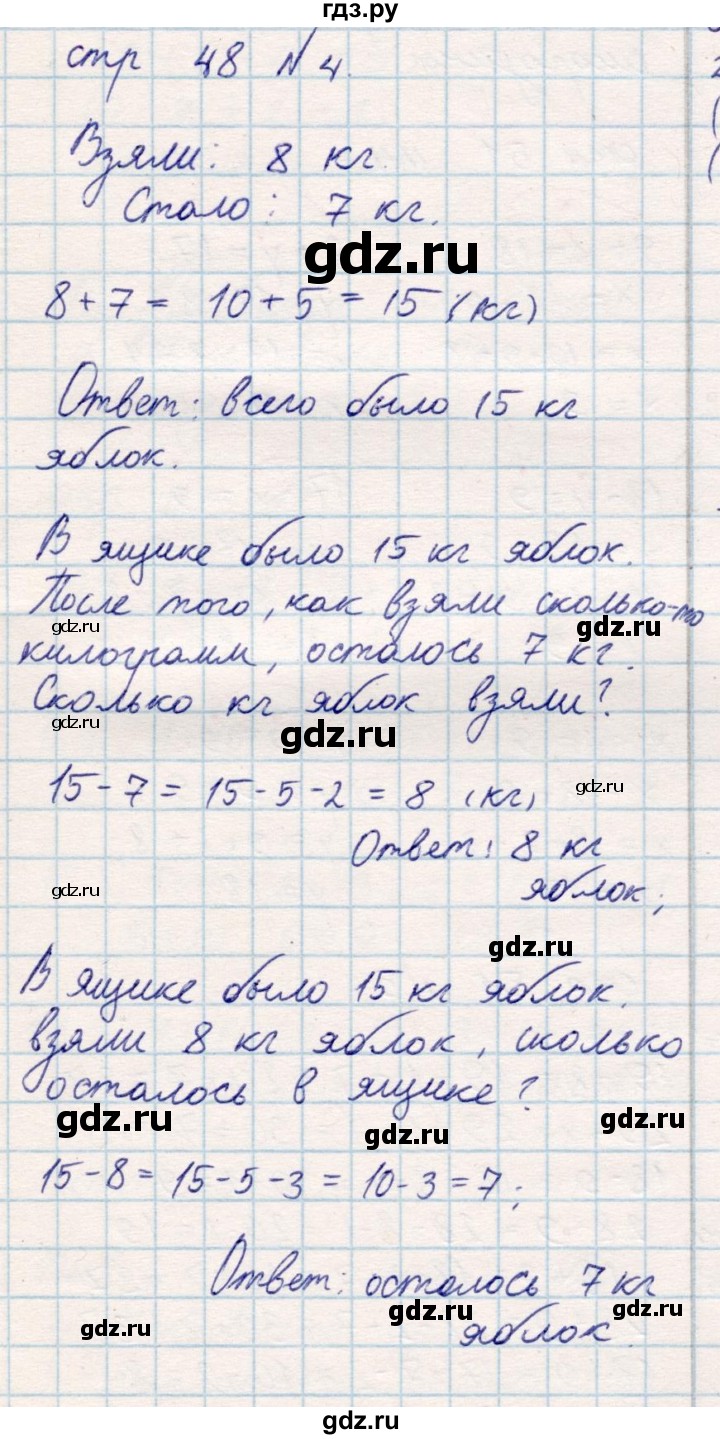 гдз.ру
стр 48 № 4.
Взяли: 8 кг.
Стало: 7 кг.
gdz.ru
8 + 7 = 10 + 5 = 15 (кг)
Ответ: всего было 15 кг
яблок.
В ящике было 15 кг яблок.
После того, как взяли сколько-то
gdz.ru
gdz.ru
килограмм, осталось 7 кг.
Сколько кг яблок взяли?
gdz.ru
gdz.ru
15 - 7 = 15 - 5 - 2 = 8 (кг)
gdz.ru
Ответ: 8 кг
gdz.ru
яблок;
gdz.ru
В ящике было 15 кг яблок.
взяли 8 кг яблок, сколько
осталось в ящике?
gdz.ru
gdz.ru
gdz.ru
15 - 8 = 15 - 5 - 3 = 10 - 3 = 7;
Ответ: осталось 7 кг
gdz.ru
gdz.ru
gdz.ru
яблок.
gdz.ru